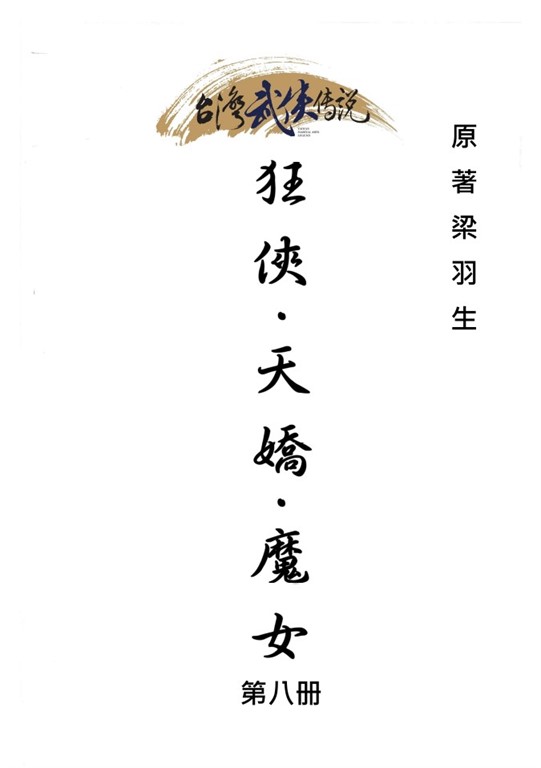 台灣武侠传说
原著梁羽生
狂俠·天嬌·魔女
第八册